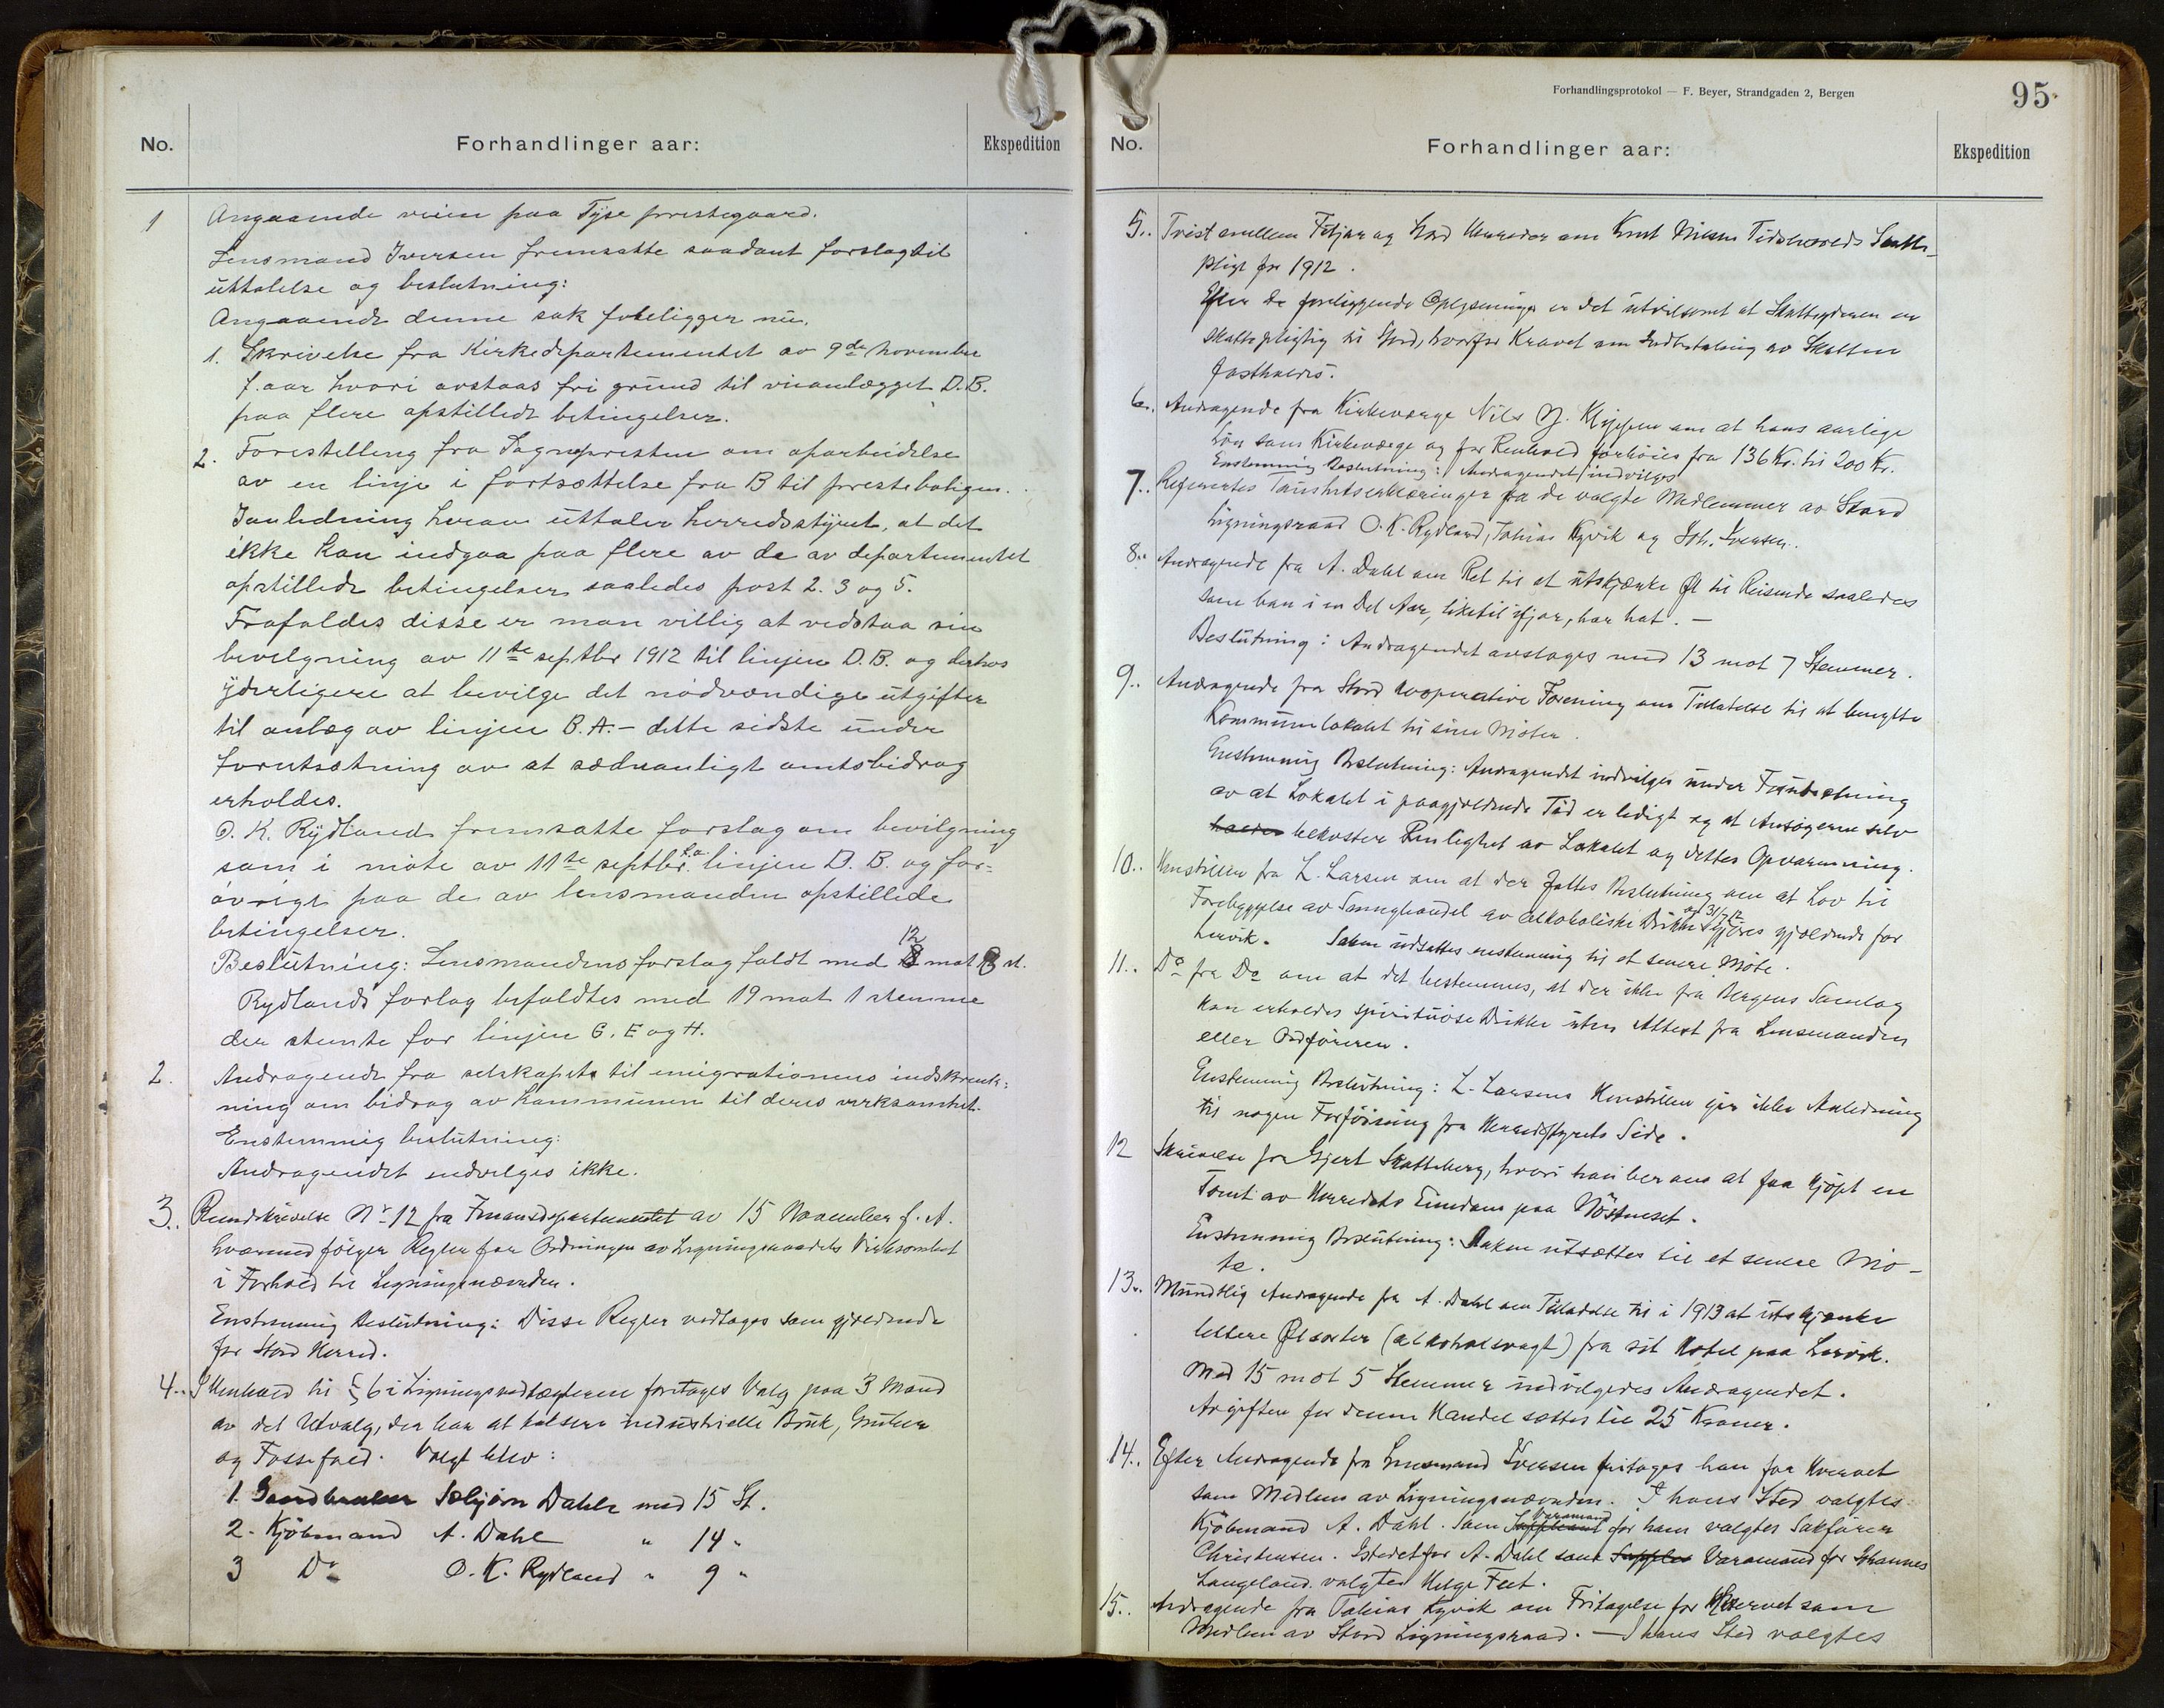 No.
Forhandlinger aar:
Ekspedition
1 Angaaende veien paa Tyse prestegaard.
Lensmand Iversen fremsatte saadant forslag til
uttalelse og beslutning:
Angaaende denne sak foreligger nu.
1. Skrivelse fra Kirkedepartementet av 9de november
f. aar hvori avstaas fri grund til veianlægget D.B.
paa flere opstillede betingelser.
2. Forestilling fra Sognepresten om oparbeidelse
av en linje i fortsættelse fra B til presteboligen.
I anledning herav uttaler herredsstyret, at det
ikke kan indgaa paa flere av de av departementet
opstillede betingelser saaledes post 2. 3 og 5.
Frafaldes disse er man villig at vedstaa sin
bevilgning av 11te septbr 1912 til linjen D.B. og derhos
yderligere at bevilge det nødvendige utgifter
til anlæg av linjen B.A. - dette sidste under
forutsætning av at sedvanligt amtsbidrag
erholdes.
O. K. Rydland fremsatte forslag om bevilgning
som i møte av 11te septbr f.a. linjen D.B. og for-
øvrigt paa de av lensmanden opstillede
betingelser.
Beslutning: Lensmandens forslag faldt med 12 mot 8 st.
Rydlands forlag befaldtes med 19 mot 1 stemme
der stemte for linjen G. E og H.
2. Andragende fra selskapets til emigrationens indskrænk-
ning om bidrag av kommunen til deres virksomhet.
Enstemmig beslutning:
Andragendet indvilges ikke.
3. Rundskrivelse Nr 12 fra Finansdepartementet av 15 November f. A.
hvormed følger Regler for Ordningen av Ligningsraadets Virksomhet
i Forhold til Ligningsnævnden.
Enstemmig Beslutning: Disse Regler vedtages som gjældende
for Stord Herred.
4. I Henhold til § 6 i Ligningsvedtægterne foretages Valg paa 3 Mænd
av det Utvalg, der har at taksere industrielle Bruk, Gruber
og Fossefald. Valgt blev:
1. Gaardbruker Sæbjørn Dahle med 15 St.
2. Kjøbmand A. Dahl " 14 "
3 Do O. K. Rydland " 9 "
Forhandlingsprotokol — F. Beyer, Strandgaden 2, Bergen
95
No.
Forhandlinger aar:
Ekspedition
5. Tvist mellem Fitjar og Stord Herreder om Knut Nilsen Tislevolds Skatte-
pligt for 1912.
Efter De foreliggende Oplysninger er det utvilsomt at Skatteyderen er
skattepligtig til Stord, hvorfor Kravet om Indbetaling av Skatten
fastholdes.
6. Andragende fra Kirkeværge Nils N. Kleppen om at hans aarlige
Løn som Kirkeværge og for Renhold forhøies fra 136 Kr. til 200 Kr.
Enstemmig Beslutning: Andragendet indvilges
7. Refereertes Taushetserklæringer fra de valgte Medlemmer av Stord
Ligningsraad O. K. Rydland, Tobias Kyvik og Joh. Iversen.
8. Andragende fra A. Dahl om Ret til at utskjænke Øl til Reisende saaledes
som han i en Del Aar, liketil ifjor, har hat. —
Beslutning: Andragendet avslages med 13 mot 7 Stemmer.
9. Andragende fra Stord kooperative Forening om Tillatelse til at benytte
Kommunelokalet til sine Møter.
Enstemmig Beslutning: Andragendet indvilges under Forutsetning
av at Lokalet i paagjældende Tid er ledigt og at Ansøgerne selv
bekoster Renlighet av Lokalet og dettes Opvarmning.
10. Henstillen fra L. Larsen om at der fattes Beslutning om at Lov til
Forebyggelse av Smughandel av alkoholiske Drikke av 31/7 12 gjøres gjældende for
Lervik. Saken utsættes enstemmig til et senere Møte.
11. Do fra Do om at det bestemmes, at der ikke fra Bergens Samlag
kan erholdes spirituøse Drikke uten Attest fra Lensmanden
eller Ordføreren.
Enstemmig Beslutning: L. Larsens Henstillen gir ikke Anledning
til nogen Forføining fra Herredsstyrets Side.
12 Skrivelse fra Gjert Skatteberg, hvori han ber om at faa kjøpt en
Tomt av Herredets Eiendom paa Nøstneset.
Enstemmig Beslutning: Saken utsættes til et senere Mø-
te.
13. Mundtlig Andragende fra A. Dahl om Tilladelse til i 1913 at utskjænke
lettere Ølsorter (alkoholsvagt) fra sit Hotel paa Lervik.
Med 15 mot 5 Stemmer indvilgedes Andragendet.
Avgiften for denne Handel sættes til 25 Kroner.
14. Efter Andragende fra Lensmand Iversen fritages han for Hvervet
som Medlem av Ligningsnævnden. I hans Sted valgtes
Kjøbmand A. Dahl. Som Suppleant Varamand for ham valgtes Sakfører
Christensen. Istedetfor A. Dahl som Varamand for Johannes
Langeland valgtes Helge Feet.
15. Andragende fra Tobias Kyvik om Fritagelse for Hvervet som
Medlem av Stord Ligningsraad. — I hans Sted valgtes